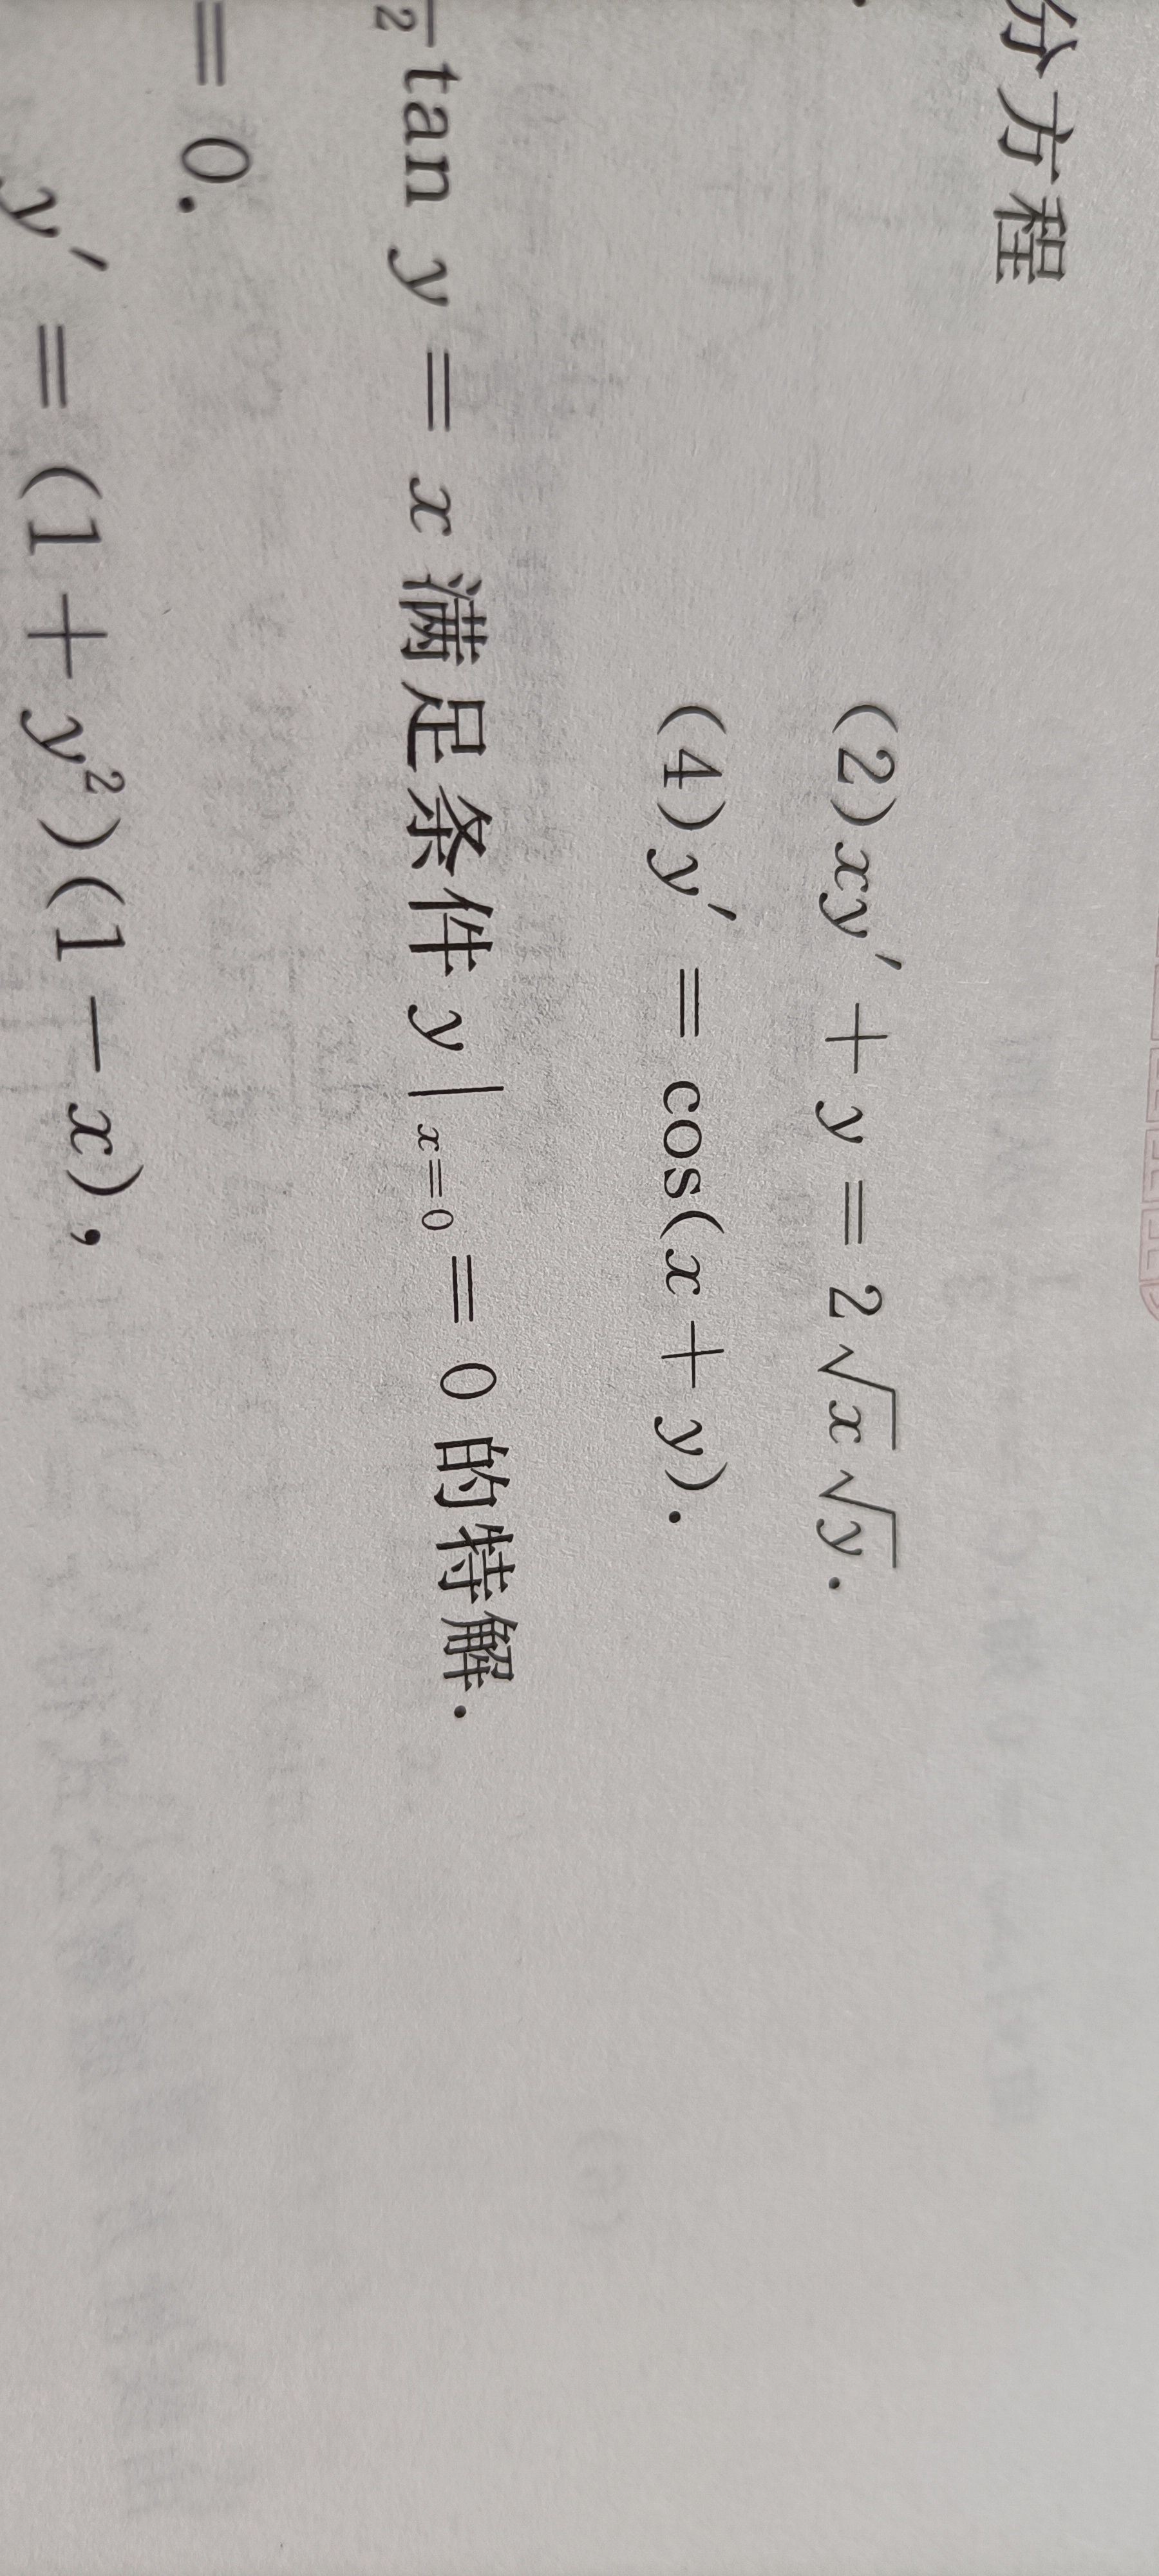 分方程
(2)xy′+y=2√x√y.
(4)y′=cos(x+y).
2 tan y=x满足条件y|x=0=0的特解.
=0.
y′=(1+y²)(1-x),